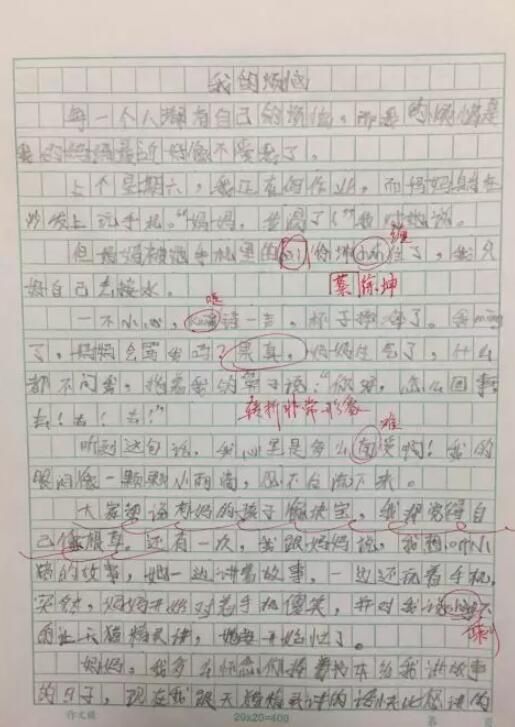 我的烦恼
每一个人都有自己的烦恼。而我的烦恼是
我的妈妈最近好像不爱我了。
上个星期六，我正在写作业，而妈妈坐在
沙发上玩手机。“妈妈，我渴了！”我对她说。
但妈妈被她手机里的 你坤 住了，我只
缠
好自己去接水。
蔡徐坤
一不小心， 一声，杯子摔碎了。我
了，妈妈会骂我吗？果真，妈妈生气了，什么
都不问我，指着我的鼻子说：“你呀，怎么回事
转折非常形象
去！去！去！”
难
听到这句话，我心里是多么 受啊！我的
眼泪像一颗颗小雨滴，忍不住流下来。
大家都说有妈的孩子像块宝，我却觉得自
己像根草。还有一次，我跟妈妈说，我想听小
猪的故事，她一边讲着故事，一边还玩着手机，
突然，妈妈开始对着手机傻笑，并对我说 不
的让天猫精灵讲，她要开始忙了。
妈妈，我多么怀念你捧着书本给我讲故事
的日子，现在我跟天猫精灵讲的话都比您讲的
作文纸
20×20=400